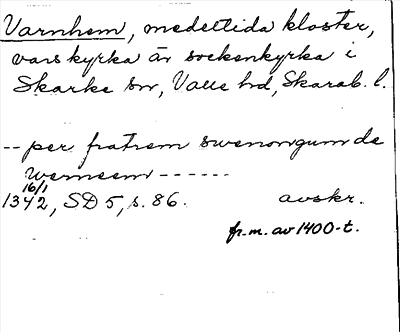 Varnhem, medeltida kloster,
vars kyrka är sockenkyrka i
Skarke sn, Valle hd, Skarab. l.
-- per fratrem swenonum de
wernem ------
16/1
1342, SD 5, s. 86. avskr.
fr. m. av 1400-t.